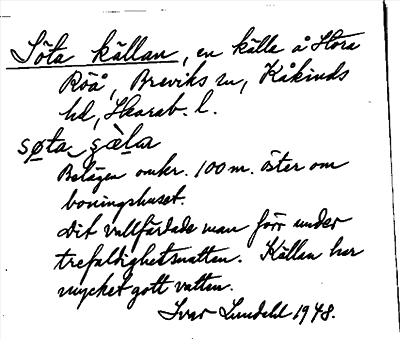 Söta källan, en källa å Stora
Röå, Breviks sn, Kåkinds
hd, Skarab. l.
søta_ çæ̀la
Belägen omkr. 100 m. öster om
boningshuset.
Dit vallfärdade man förr under
trefaldighetsnatten. Källan har
mycket gott vatten.
Ivar Lundahl 1948.